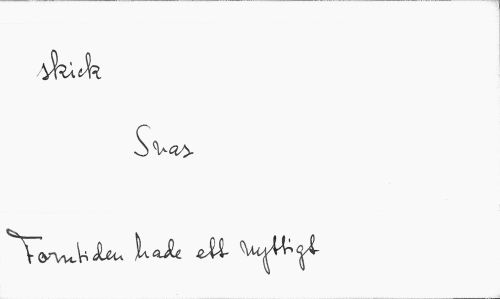 skick
Snas
Forntiden hade ett nyttigt